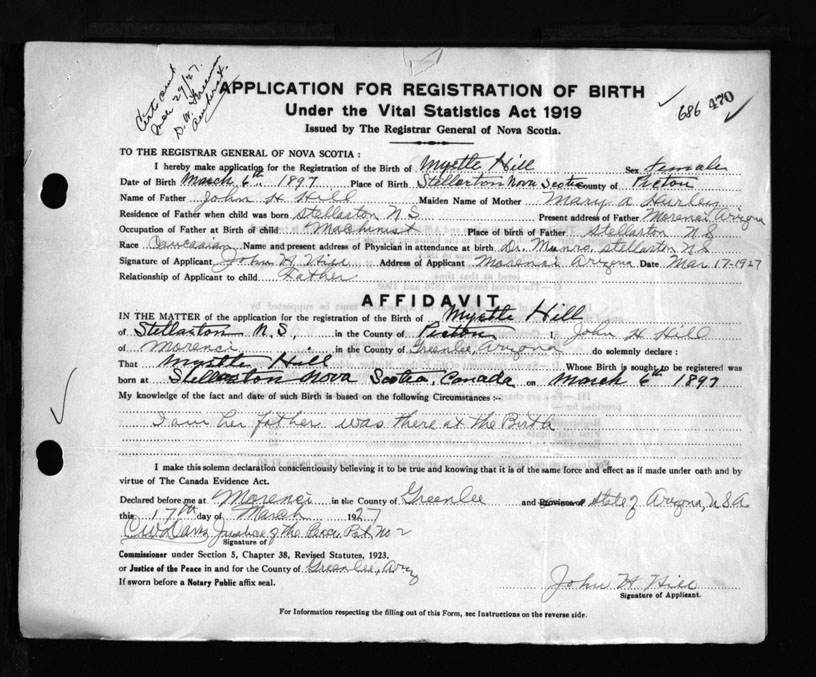 Nov 29/27.
D. W.
Amherst.
686 470
APPLICATION FOR REGISTRATION OF BIRTH
Under the Vital Statistics Act 1919
Issued by The Registrar General of Nova Scotia.
TO THE REGISTRAR GENERAL OF NOVA SCOTIA :
I hereby make application for the Registration of the Birth of Myrtle Hill Sex Female
Date of Birth March 6th 1897 Place of Birth Stellarton Nova Scotia County of Pictou
Name of Father John H Hill Maiden Name of Mother Mary A Hurley
Residence of Father when child was born Stellarton N.S Present address of Father Morenci Arizona
Occupation of Father at Birth of child Machinist Place of birth of Father Stellarton N S
Race Caucasian Name and present address of Physician in attendance at birth Dr. Munro, Stellarton N S
Signature of Applicant John H. Hill Address of Applicant Morenci Arizona Date Mar 17-1927
Relationship of Applicant to child Father
AFFIDAVIT
IN THE MATTER of the application for the registration of the Birth of Myrtle Hill
of Stellarton N.S, in the County of Pictou I, John H Hill
of Morenci in the County of Greenlee, Arizona do solemnly declare :
That Myrtle Hill Whose Birth is sought to be registered was
born at Stellarton Nova Scotia, Canada on March 6th 1897
My knowledge of the fact and date of such Birth is based on the following Circumstances :-
I am her father was there at the Birth
I make this solemn declaration conscientiously believing it to be true and knowing that it is of the same force and effect as if made under oath and by
virtue of The Canada Evidence Act.
Declared before me at Morenci in the County of Greenlee and Province of State of Arizona, U S A
this 17th day of March 1927
Justice of the Peace, Pct No 2
Signature of
Commissioner under Section 5, Chapter 38, Revised Statutes, 1923.
or Justice of the Peace in and for the County of Greenlee, Ariz
If sworn before a Notary Public affix seal.
John H Hill
Signature of Applicant.
For Information respecting the filling out of this Form, see Instructions on the reverse side.